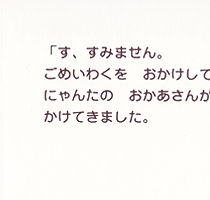 「す、すみません。
ごめいわくを　おかけして
にゃんたの　おかあさんが
かけてきました。